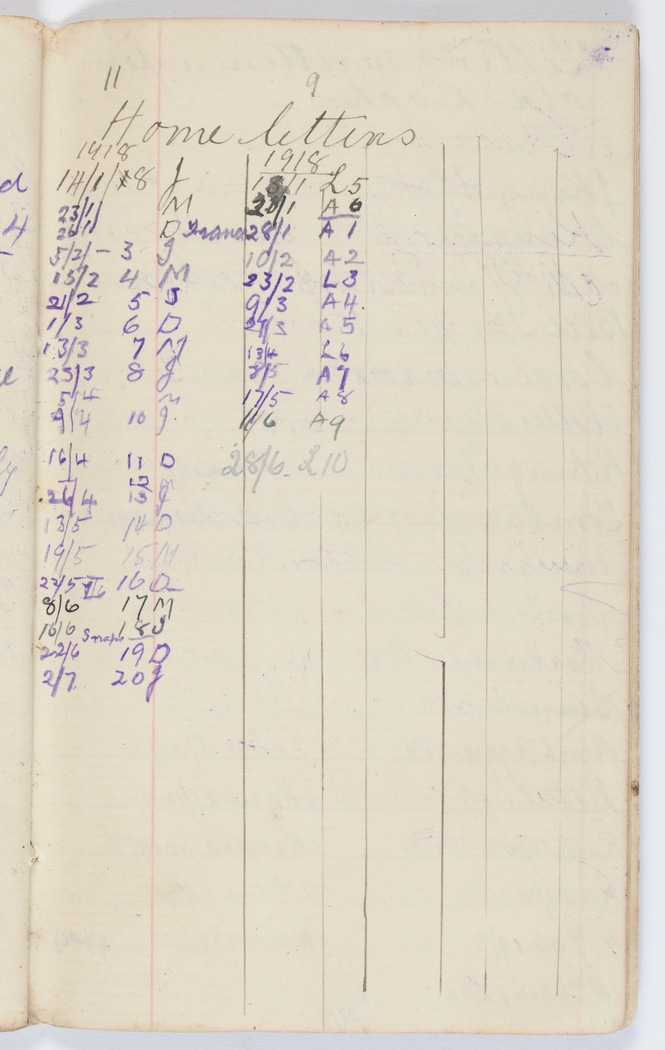 11 9
Home letters
1918 1918
14/1/ 8 J 13/1 L 5
23/1 M 20/1 A 6
26/1 D 28/1 A 1
5/2/- 3 J 10/2 A 2
15/2 4 M 23/2 L 3
21/2 5 J 9/3 A 4
1/3 6 D 27/3 A 5
13/3 7 M 13/4 L 6
23/3 8 J 3/5 A 7
5/4 M 17/5 A 8
9/4 10 J 1/6 A 9
16/4 11 D 28/6. L 10
12
26/4 13 J
13/5 14 D
19/5 15 M
22/5 16 D
8/6 17 M
16/6 Snaps 18 J
22/6 19 D
2/7 20 J